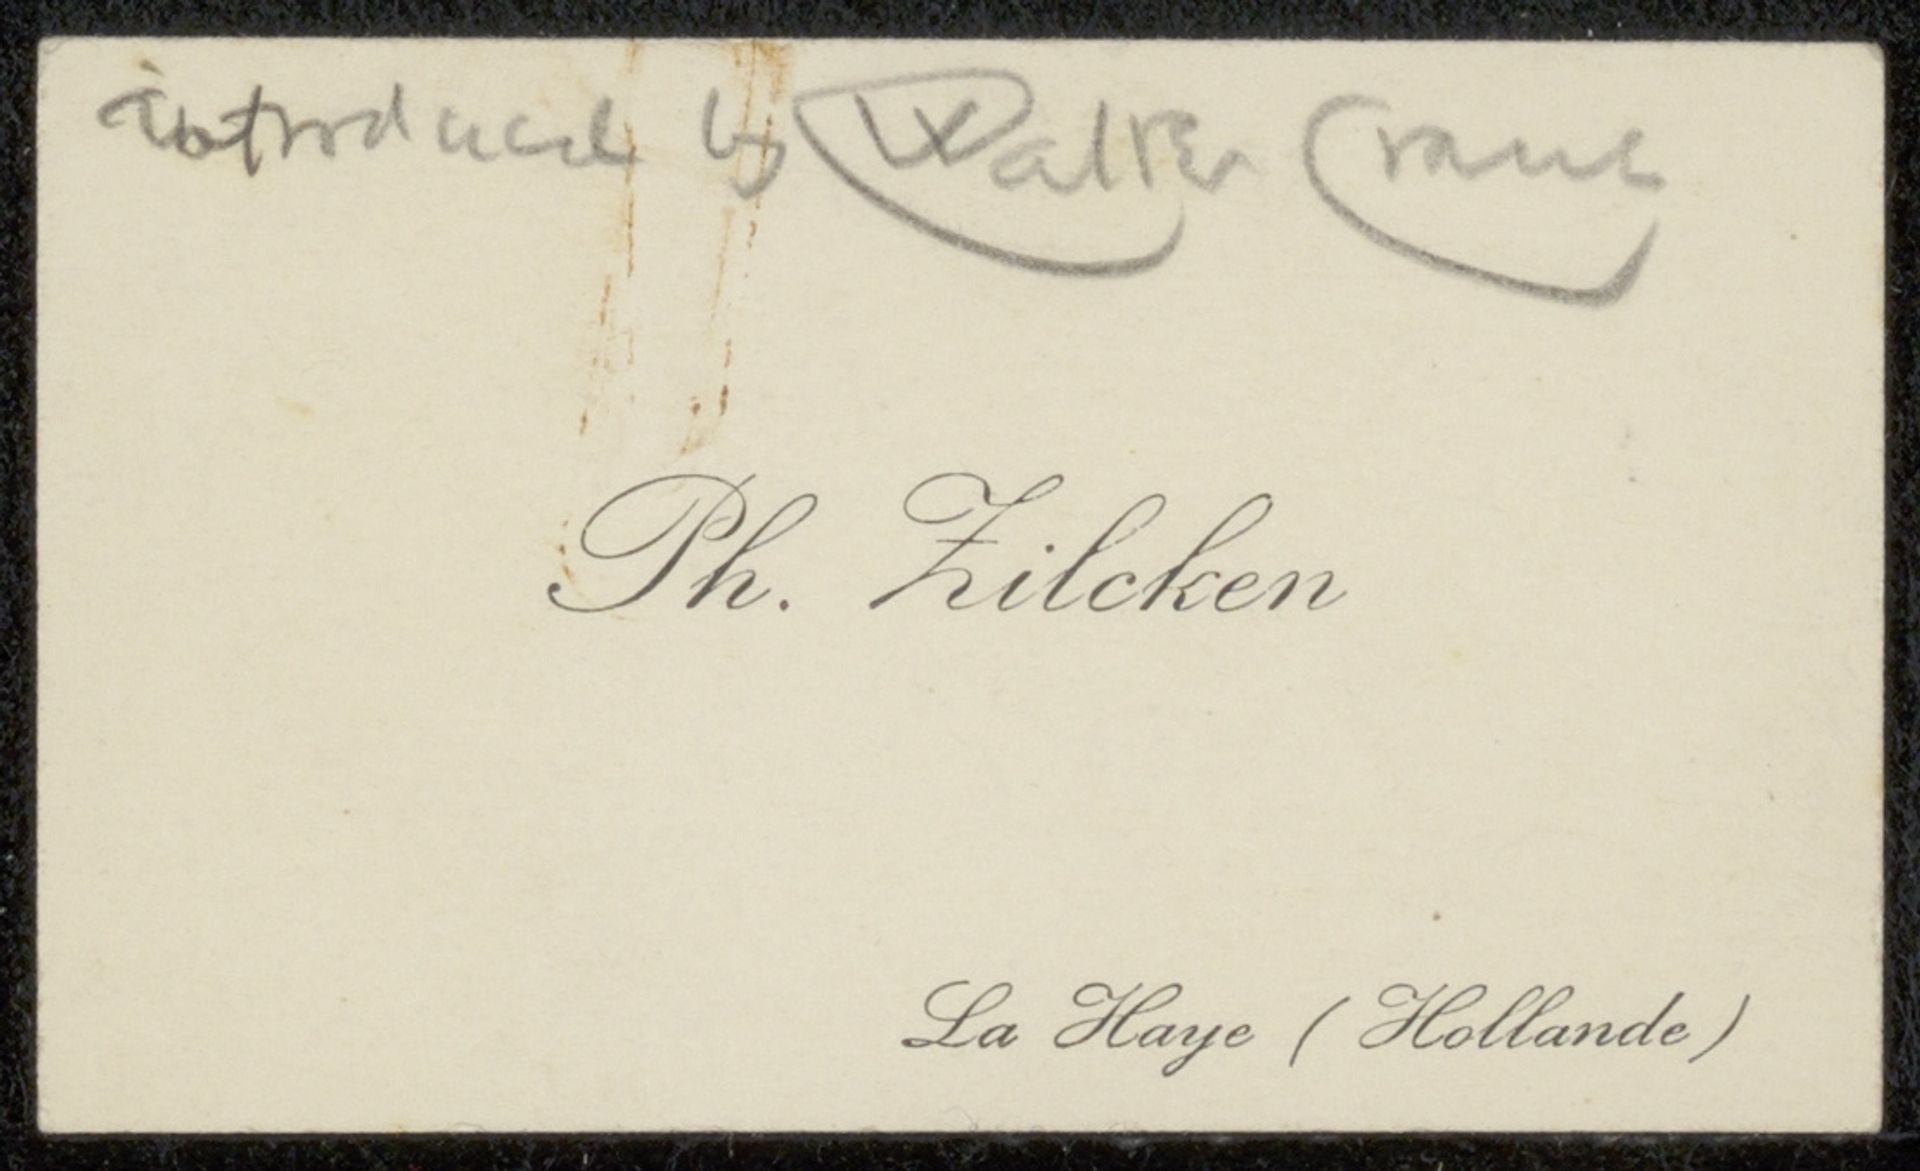 introduced by Walter Crane
Ph. Zilcken
La Haye (Hollande)